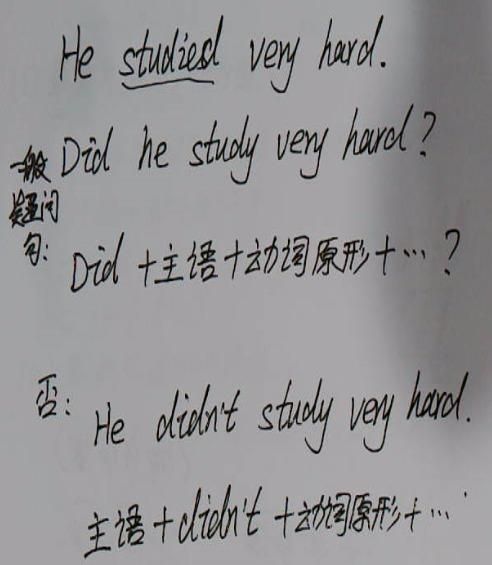 He studied very hard.
一般疑问句: Did he study very hard?
Did +主语+动词原形+…?
否: He didn't study very hard.
主语+didn't+动词原形+…